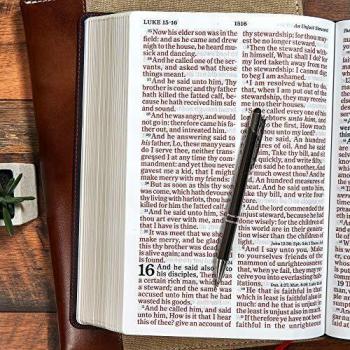 LUKE 15-16
1516
An Unjust Steward
25 Now his elder son was in the
field: and as he came and drew
nigh to the house, he heard mu-
sick and dancing.
26 And he called one of the ser-
vants, and asked what these
things meant.
27 And he said unto him, Thy
brother is come; and thy father
hath killed the fatted calf, be-
cause he hath received him safe
and sound.
28 And he was angry, and would
not go in: therefore came his fa-
ther out, and intreated him.
29 And he answering said to
his father, Lo, these many years
do I serve thee, neither trans-
gressed I at any time thy com-
mandment: and yet thou never
gavest me a kid, that I might
make merry with my friends:
30 But as soon as this thy son
was come, which hath devoured
thy living with harlots, thou hast
killed for him the fatted calf.
31 And he said unto him, Son,
thou art ever with me, and all
that I have is thine.
32 It was meet that we should
make merry, and be glad: for
this thy brother was dead, and
is alive again; and was lost, and
is found.
16 And he said also unto
his disciples, There was
a certain rich man, which had
a steward; and the same was
accused unto him that he had
wasted his goods.
2 And he called him, and said
unto him, How is it that I hear
this of thee? give an account of
thy stewardship; for thou may-
est be no longer steward.
3 Then the steward said with-
in himself, What shall I do? for
my lord taketh away from me
the stewardship: I cannot dig;
to beg I am ashamed.
4 I am resolved what to do,
that, when I am put out of the
stewardship, they may receive
me into their houses.
5 So he called every one of his
debtors unto him, and
the first, How much
thou unto my lord?
And he said, An hundred
measures of oil. And he said
Take thy bill, and sit
quickly, and write fifty.
said he to another, And
much owest thou? And he
An hundred measures of
And he said unto him,
thy bill, and write
And the lord commended the
unjust steward, because he had
done wisely: for the children of
this world are in their genera-
tion wiser than the children of
light.
9 And I say unto you, Make
to yourselves friends of the
mammon of unrighteousness;
that, when ye fail, they may re-
ceive you into everlasting habi-
tations.
10 He that is faithful in that
which is least is faithful also in
much: and he that is unjust in
the least is unjust also in much.
11 If therefore ye have not been
faithful in the unrighteous